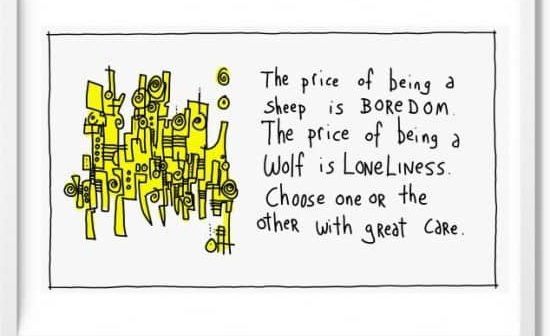 The price of being a
sheep is BOReDOM.
The price of being a
Wolf is LoNeLiNess.
Choose one or the
other with great care.